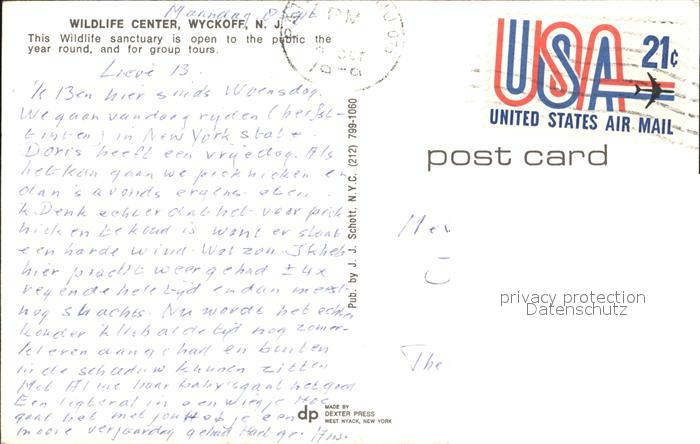 Maandag 8 okt
WILDLIFE CENTER, WYCKOFF, N. J.
This Wildlife sanctuary is open to the public the
year round, and for group tours.
Lieve B.
'k Ben hier sinds Woensdag.
We gaan vandaag rijden (herfst-
tinten) in New York State
Doris heeft een vrije dag. Als
het kan gaan we picknicken en
dan 's avonds ergens eten.
k Denk echter dat het voor pick
nicken te koud is want er staat
een harde wind. Wel zon. Ik heb
hier pracht weer gehad ± 4x
regende hele tijd en dan meest-
nog 's nachts. Nu wordt het echter
kouder ik heb al de tijd nog zomer-
kleren aangehad en buiten
in de schaduw kunnen zitten
Met Al en haar baby's gaat het goed
Een ligt al in een wiegje Hoe
gaat het met jou Heb je een
mooie verjaardag gehad Hart. gr.
Pub. by J. J. Schott, N.Y.C. (212) 799-1060
dp
MADE BY
DEXTER PRESS
WEST NYACK, NEW YORK
PM
OCT
USA 21¢
UNITED STATES AIR MAIL
post card
Mev
The
privacy protection
Datenschutz